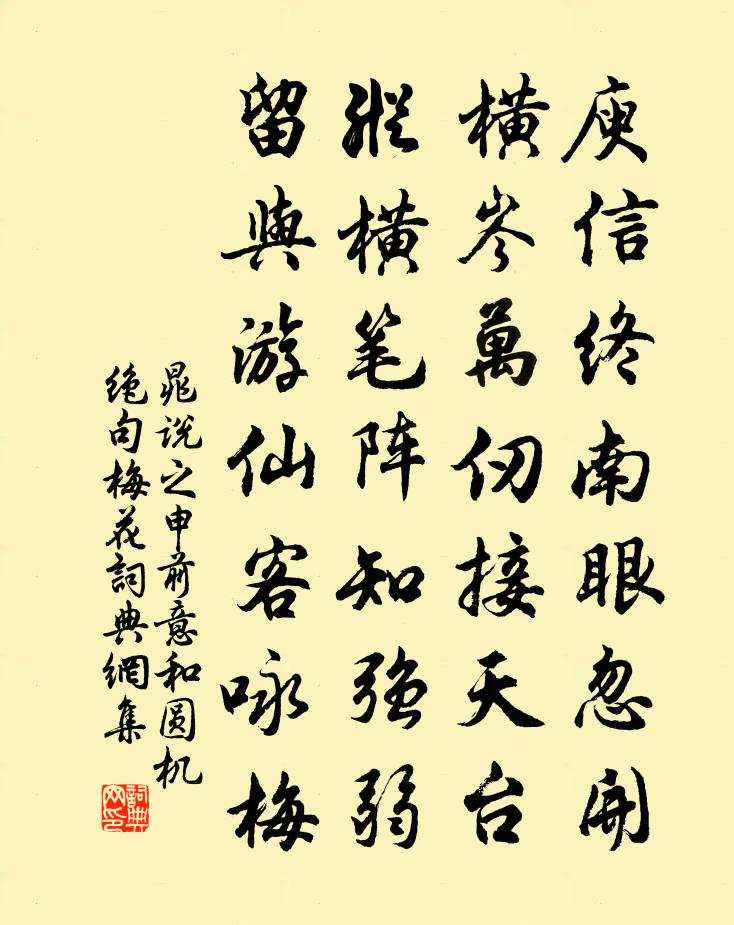 庾信终南眼忽开
横岑萬仞接天台
縱横笔阵知强弱
留與游仙客咏梅
晁说之申前意和圆机
绝句梅花詞典網集
詞典網印